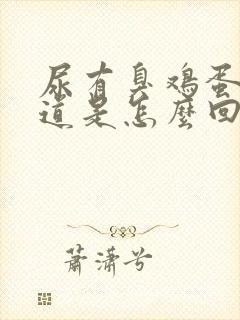 尿有臭鸡蛋
道是怎麼回
萧潇兮